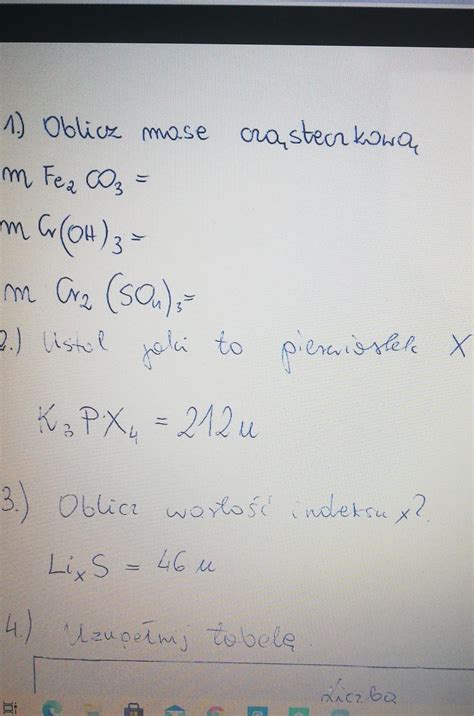 1.) Oblicz mase cząsteczkową
m Fe₂ CO₃ =
m Cr(OH)₃ =
m Cr₂ (SO₄)₃=
2.) Ustal jaki to pierwiostek X
K₃PX₄ = 212u
3.) Oblicz wartość indeksu x?
LiₓS = 46 u
4.) Uzupełnij tabelę.
Liczba